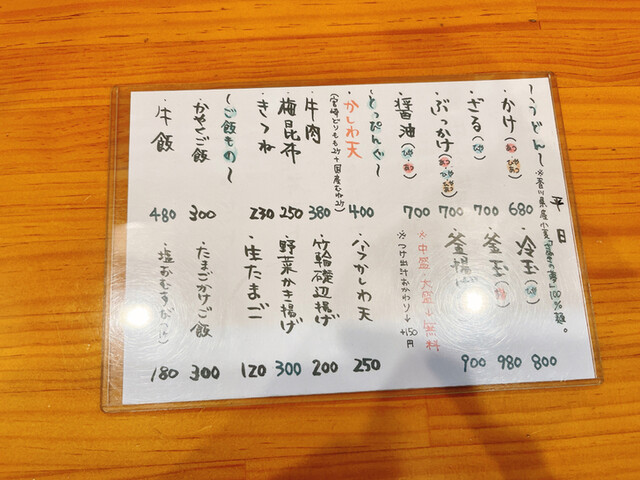 平日
〜うどん〜 ※香川県産小麦「さぬきの夢」100%麺。
かけ 680
ざる(ひや) 700
ぶっかけ 700
醤油(ひや・あつ) 700
冷玉(ひや) 800
釜玉 980
釜揚げ 900
※中盛・大盛り無料
※つけ出汁おかわり↓+150円
〜とっぴんぐ〜
かしわ天 400
牛肉 380
梅昆布 250
きつね 230
ハーフかしわ天 250
竹輪磯辺揚げ 200
野菜かき揚げ 300
生たまご 120
〜ご飯もの〜
かやくご飯 300
牛飯 480
たまごかけご飯 300
塩おむすび 180